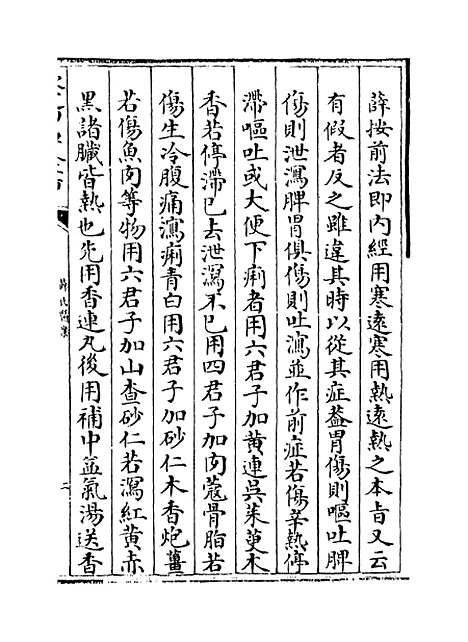 薛按前法即内經用寒遠寒用熱遠熱之本旨又云
有假者反之雖違其時以從其症葢胃傷則嘔吐脾
傷則泄瀉脾胃俱傷則吐瀉並作前症若傷辛熱停
滯嘔吐或大便下痢者用六君子加黄連吳茱萸木
香若停滯已去泄瀉不已用四君子加肉蔻骨脂若
傷生冷腹痛瀉痢青白用六君子加砂仁木香炮薑
若傷魚肉等物用六君子加山查砂仁若瀉紅黄赤
黑諸臟皆熱也先用香連丸後用補中益氣湯送香
薛氏醫案
二